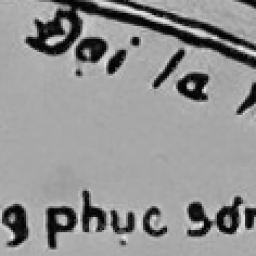 Đại la
g phục sơn